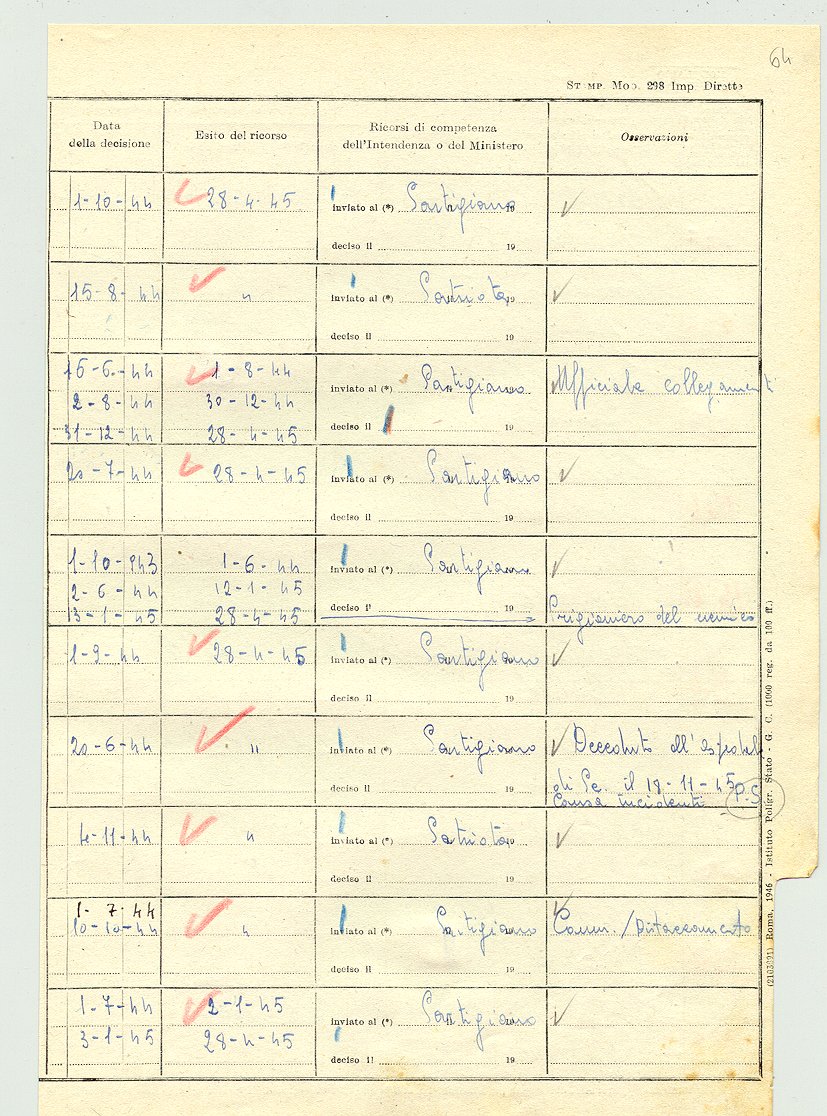 64
STAMP. MOD. 298 Imp. Dirette
Data della decisione
Esito del ricorso
Ricorsi di competenza dell'Intendenza o del Ministero
Osservazioni
1-10-44 28-4-45 inviato al (*) Partigiano 19
deciso il 19
15-8-44 " inviato al (*) Patriota 19
deciso il 19
15-6-44 1-8-44 inviato al (*) Partigiano Ufficiale collegamenti
2-8-44 30-12-44
31-12-44 28-4-45 deciso il 19
20-7-44 28-4-45 inviato al (*) Partigiano
deciso il 19
1-10-943 1-6-44 inviato al (*) Partigiano
2-6-44 12-1-45
13-1-45 28-4-45 deciso il 19 Prigioniero del nemico
1-9-44 28-4-45 inviato al (*) Partigiano
deciso il 19
20-6-44 " inviato al (*) Partigiano Deceduto all'ospedale
deciso il 19 di Pc. il 18-11-45 P.S
causa incidenti
4-11-44 " inviato al (*) Patriota 19
deciso il 19
1-7-44
10-10-44 " inviato al (*) Partigiano 19 Comm./Distaccamento
deciso il 19
1-7-44 2-1-45 inviato al (*) Partigiano 19
3-1-45 28-4-45
deciso il 19
(2163891) Roma, 1946 - Istituto Poligr. Stato - G. C. (1000 reg. da 100 ff.)